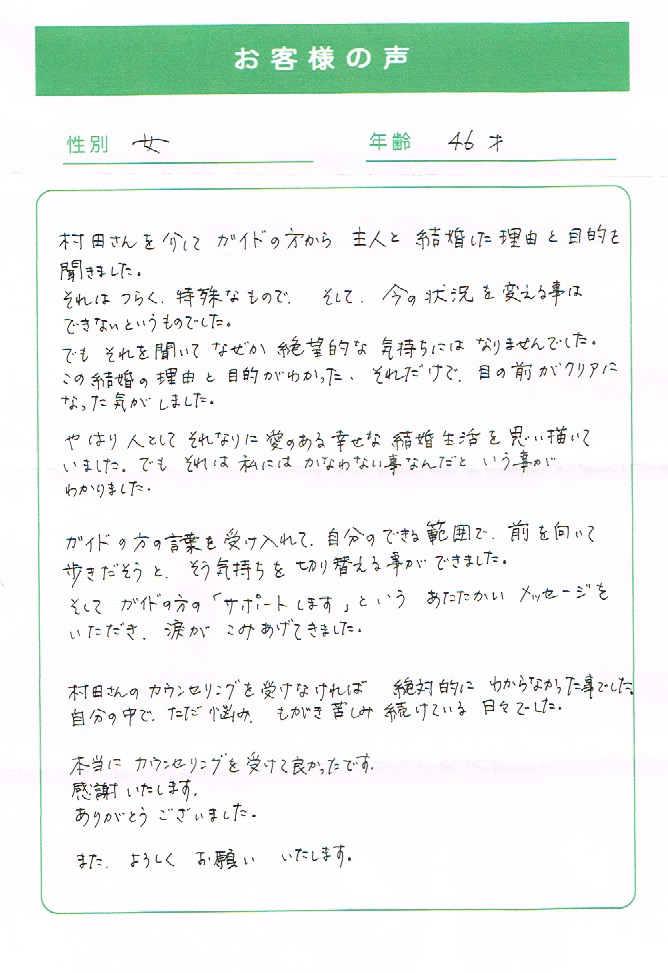 お客様の声
性別 女 年齢 46才
村田さんを介して ガイドの方から 主人と 結婚した理由と目的を
聞きました。
それは つらく、特殊なもので、そして、今の状況を変える事は
できないというものでした。
でも それを聞いて なぜか 絶望的な 気持ちには なりませんでした。
この結婚の理由と目的がわかった、それだけで、目の前がクリアに
なった気がしました。
やはり人として それなりに 愛のある幸せな 結婚生活を思い描いて
いました。でも それは 私には かなわない事なんだと いう事が
わかりました。
ガイドの方の言葉を受け入れて、自分のできる範囲で、前を向いて
歩きだそうと、そう気持ちを切り替える事ができました。
そして ガイドの方の「サポートします」という あたたかい メッセージを
いただき、涙が こみあげてきました。
村田さんのカウンセリングを受けなければ 絶対的に わからなかった事でした。
自分の中で、ただ悩み、もがき苦しみ続けている 日々でした。
本当に カウンセリングを受けて良かったです。
感謝いたします。
ありがとうございました。
また、よろしく お願い いたします。